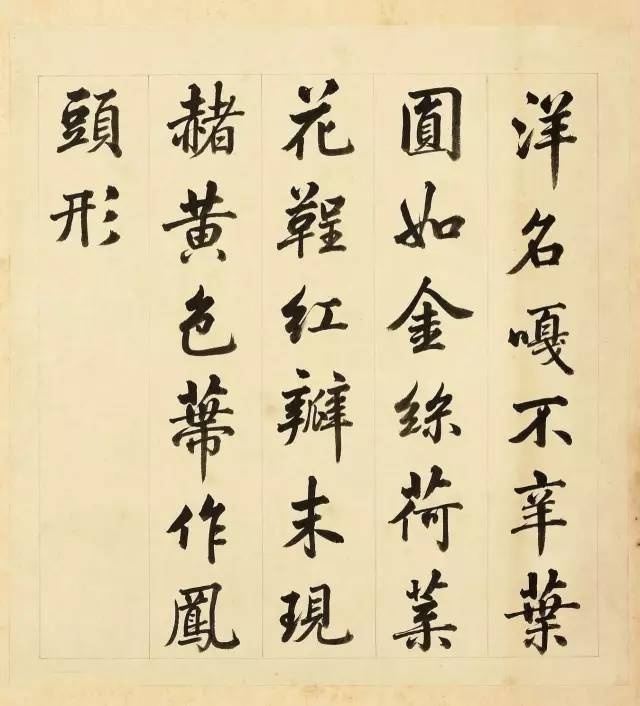 洋名嘎不辛葉
圓如金絲荷菜
花鞓紅瓣末現
赭黄色蔕作鳳
頭形